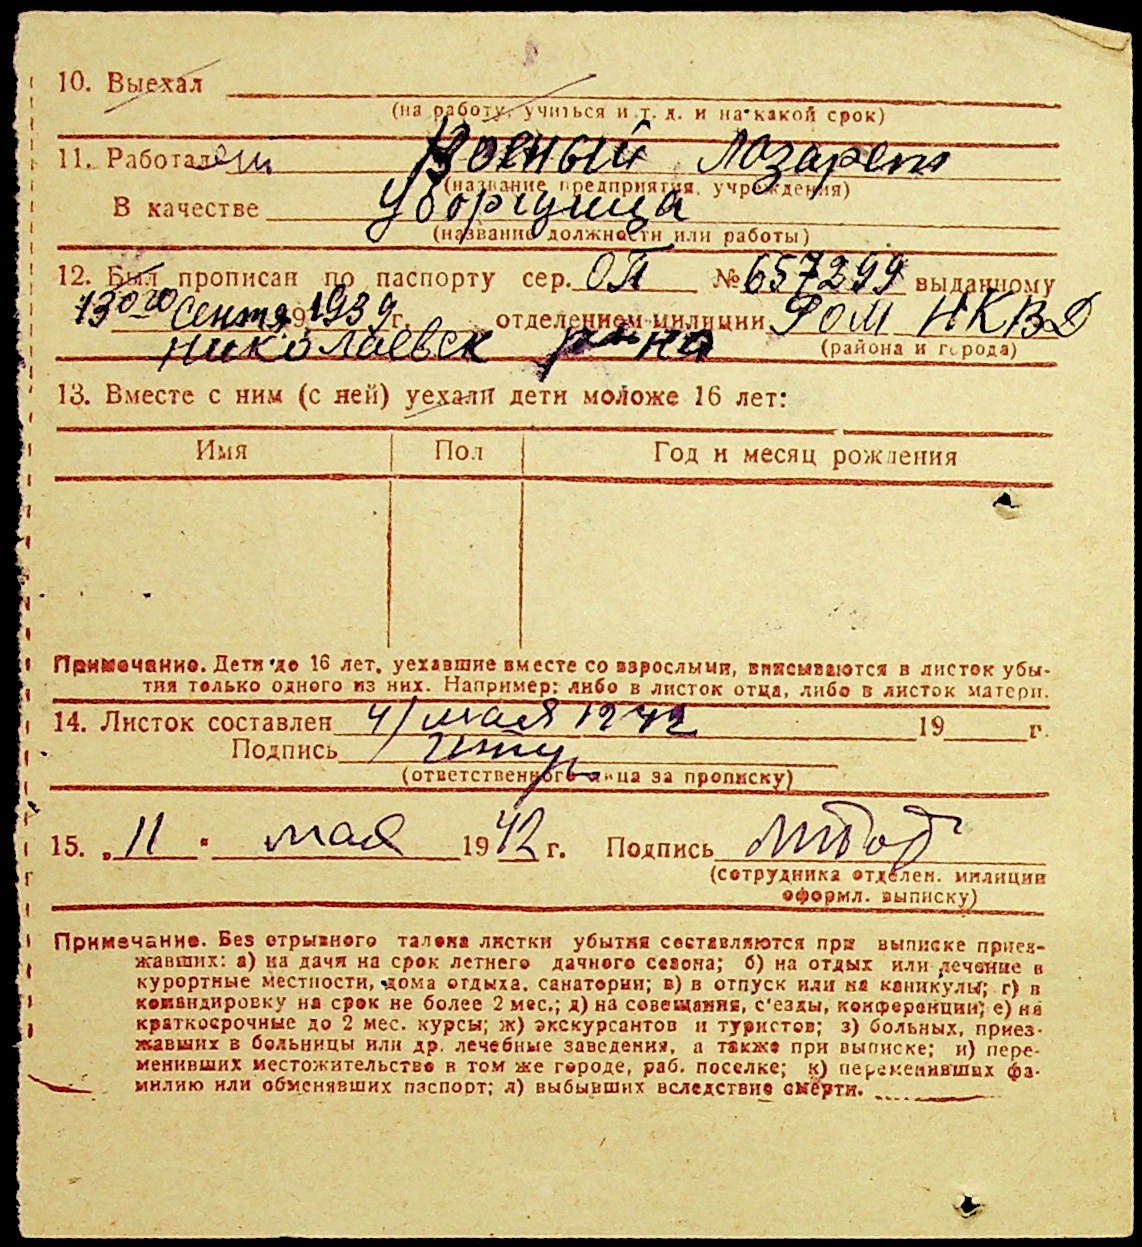 10. Выехал
(на работу, учиться и т. д. и на какой срок)
11. Работал Военый Лазарет
(название предприятия, учреждения)
В качестве Уборщица
(название должности или работы)
12. Был прописан по паспорту сер. ОП № 657299 выданному
13ого сентя 1939 г. отделением милиции РОМ НКВД
Николаевск р-на
(района и города)
13. Вместе с ним (с ней) уехали дети моложе 16 лет:
Имя Пол Год и месяц рождения
Примечание. Дети до 16 лет, уехавшие вместе со взрослыми, вписываются в листок убы-
тия только одного из них. Например: либо в листок отца, либо в листок матери.
14. Листок составлен 4/ мая 1942 19 г.
Подпись
(ответственного лица за прописку)
15. „ 11 " мая 1942 г. Подпись
(сотрудника отделен. милиции
оформл. выписку)
Примечание. Без отрывного талона листки убытия составляются при выписке приез-
жавших: а) на дачи на срок летнего дачного сезона; б) на отдых или лечение в
курортные местности, дома отдыха, санатории; в) в отпуск или на каникулы; г) в
командировку на срок не более 2 мес.; д) на совещания, с'езды, конференции; е) на
краткосрочные до 2 мес. курсы; ж) экскурсантов и туристов; з) больных, приез-
жавших в больницы или др. лечебные заведения, а также при выписке; и) пере-
менивших местожительство в том же городе, раб. поселке; к) переменивших фа-
милию или обменявших паспорт; л) выбывших вследствие смерти.